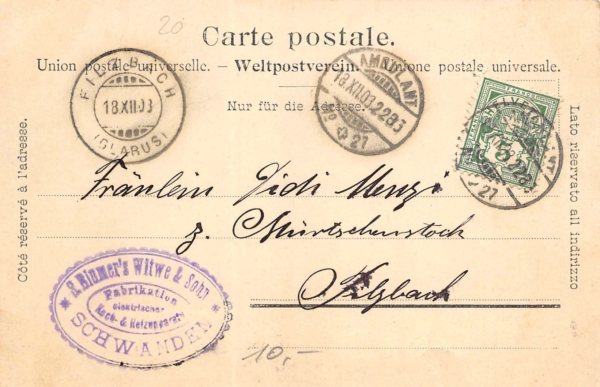 20
Carte postale.
Union postale universelle. – Weltpostverein. – Unione postale universale.
Nur für die Adresse.
FILZBACH
18.XII.03
(GLARUS)
AMBULANT
18.XII.03
27
HELVETIA
FRANCO
5
27
Côté réservé à l'adresse.
Lato riservato all indirizzo
Fräulein Didi Menzi
z. Mürtschenstock
Filzbach
Witwe & Sohn
Fabrikation
elektrischer
Koch- & Heizapparate
SCHWANDEN
10,-